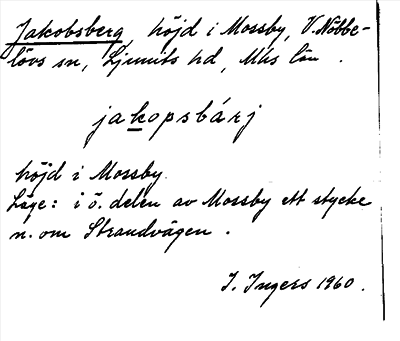 Jakobsberg, höjd i Mossby, V. Nöbbe-
lövs sn, Ljunits hd, Mlhs län.
jakopsbárj
höjd i Mossby.
Läge: i ö. delen av Mossby ett stycke
n. om Strandvägen.
I. Ingers 1960.